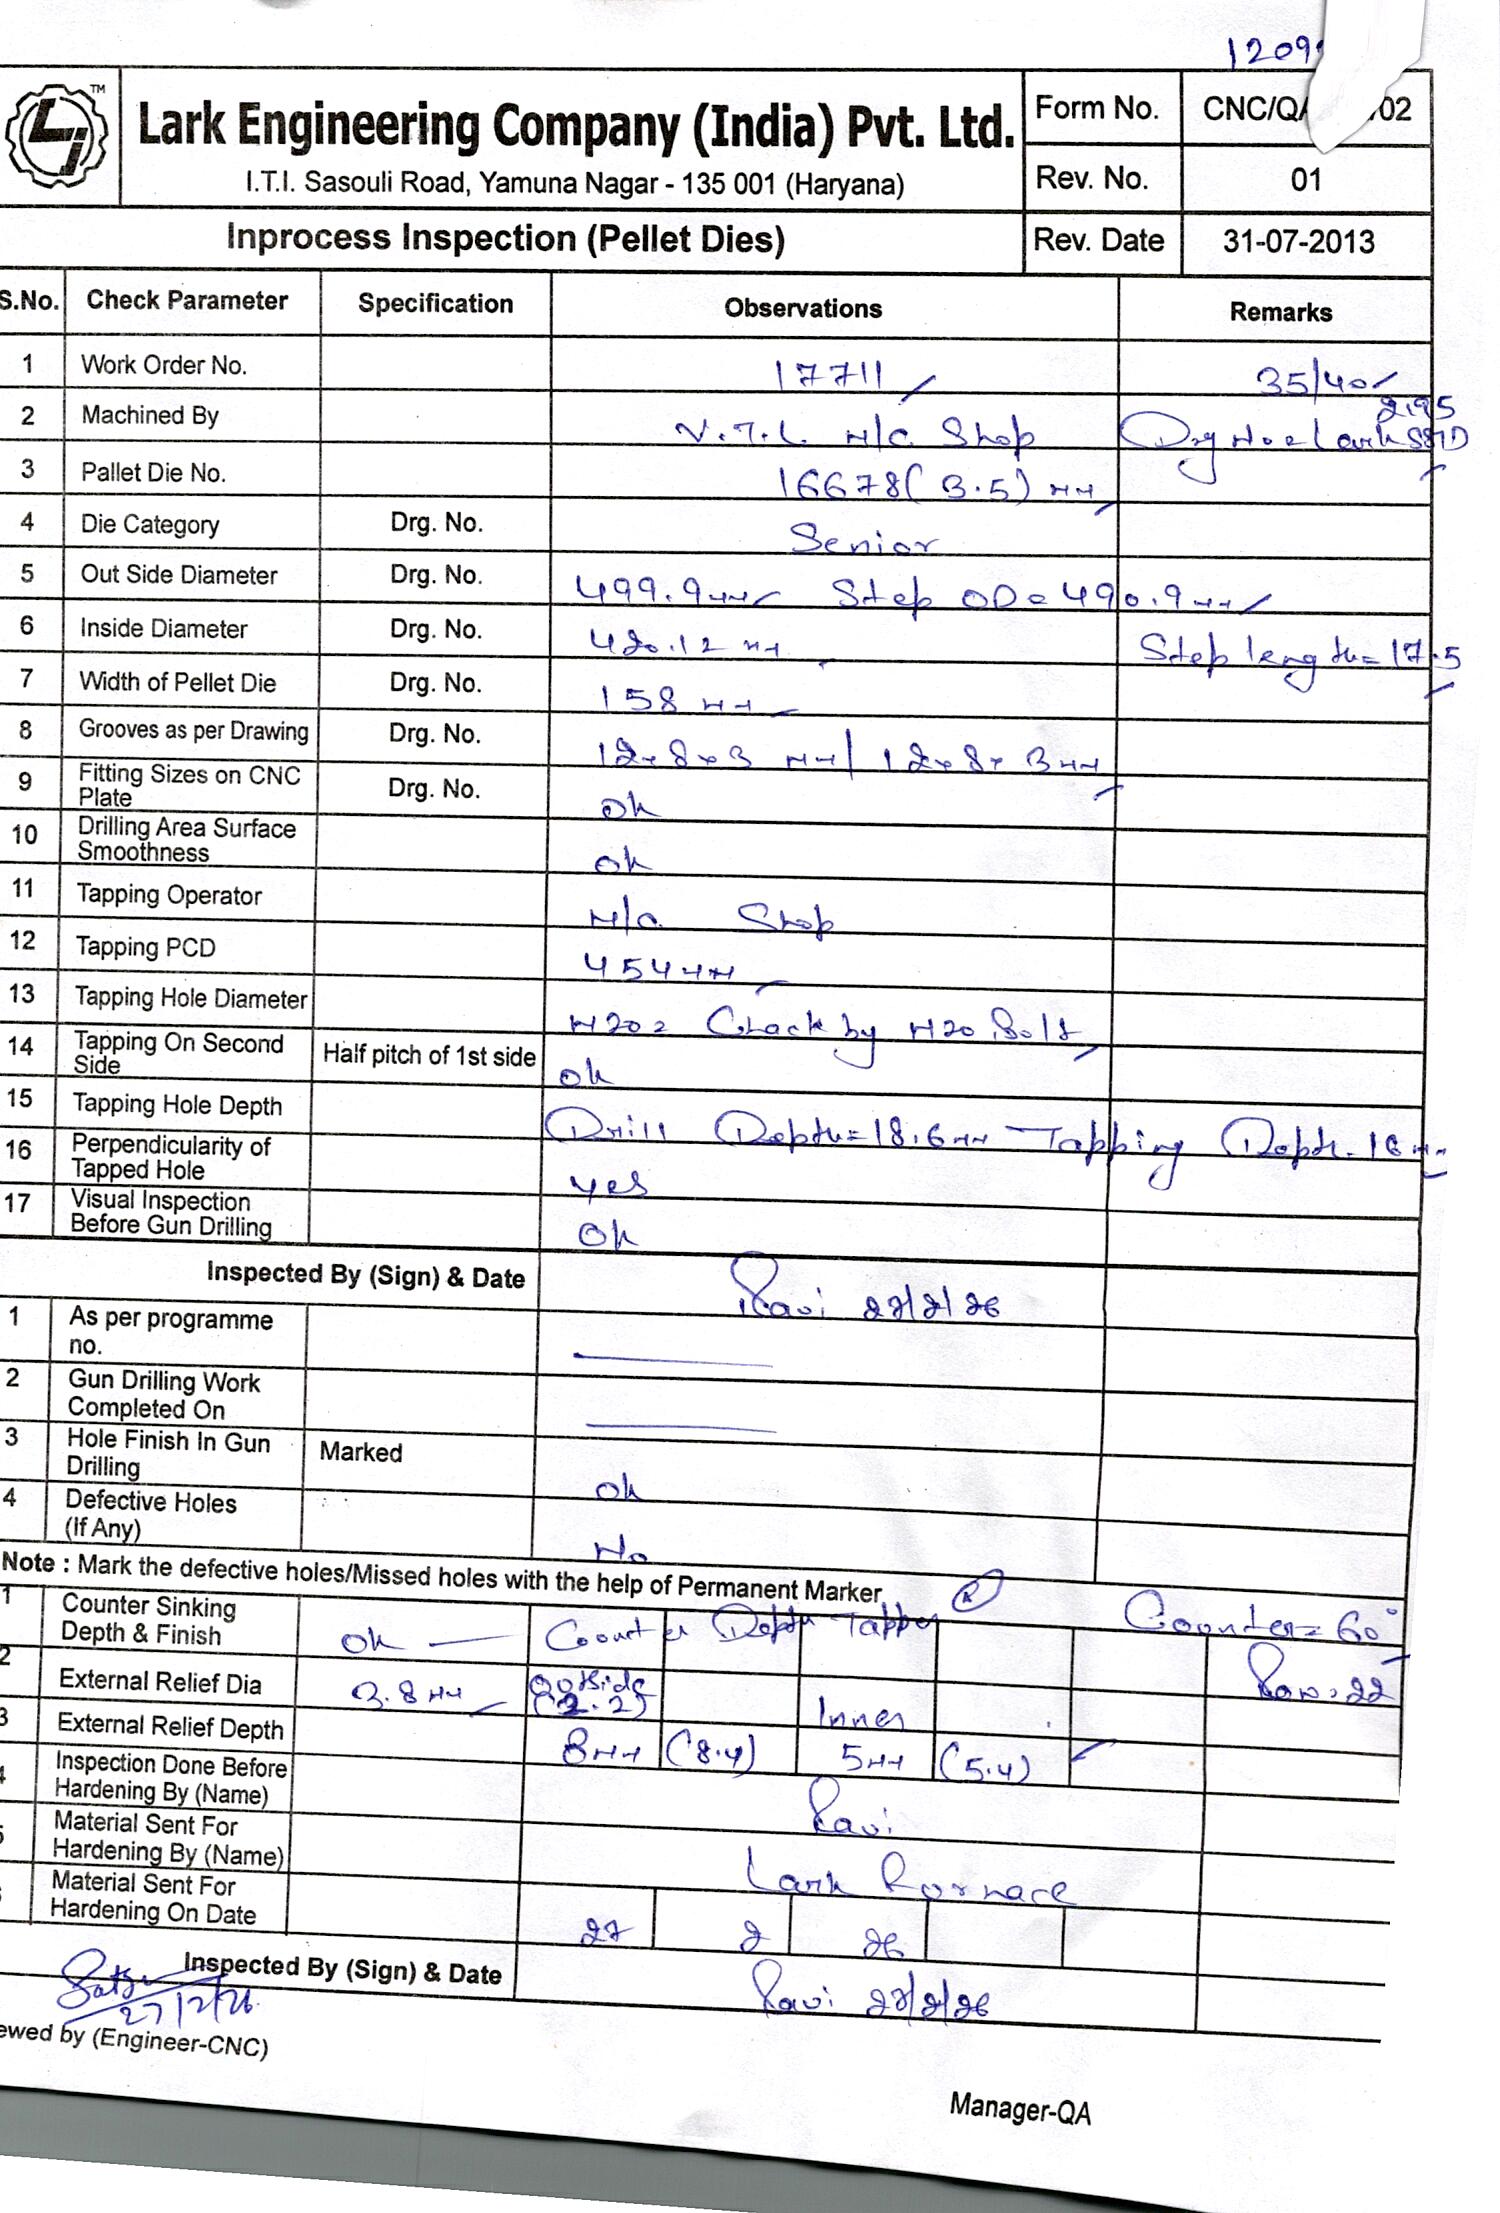 1209
TM
Lark Engineering Company (India) Pvt. Ltd.
I.T.I. Sasouli Road, Yamuna Nagar - 135 001 (Haryana)
Form No. CNC/QA 02
Rev. No. 01
Inprocess Inspection (Pellet Dies) Rev. Date 31-07-2013
S.No. Check Parameter Specification Observations Remarks
1 Work Order No. 17711 35/40
2 Machined By V.T.L M/C Shop 2.95 Drg No = Lark
3 Pallet Die No. 16678(3.5) MM
4 Die Category Drg. No. Senior
5 Out Side Diameter Drg. No. 499.9 MM Step OD = 490.9 MM
6 Inside Diameter Drg. No. 420.12 MM Step length = 17.5
7 Width of Pellet Die Drg. No. 158 MM
8 Grooves as per Drawing Drg. No. 12×8×3 MM / 12×8×3 MM
9 Fitting Sizes on CNC Plate Drg. No. Ok
10 Drilling Area Surface Smoothness Ok
11 Tapping Operator M/C Shop
12 Tapping PCD 454 MM
13 Tapping Hole Diameter M20 = Check by M20 Bolt
14 Tapping On Second Side Half pitch of 1st side Ok
15 Tapping Hole Depth Drill Depth = 18.6 MM Tapping Depth - 16 MM
16 Perpendicularity of Tapped Hole Yes
17 Visual Inspection Before Gun Drilling Ok
Inspected By (Sign) & Date Ravi 27/2/26
1 As per programme no.
2 Gun Drilling Work Completed On
3 Hole Finish In Gun Drilling Marked Ok
4 Defective Holes (If Any) No
Note : Mark the defective holes/Missed holes with the help of Permanent Marker R
1 Counter Sinking Depth & Finish Ok Counter Depth Counter = 60°
2 External Relief Dia 3.8 MM Outside (2.2) Inner
3 External Relief Depth 8 MM (8.4) 5 MM (5.4)
4 Inspection Done Before Hardening By (Name) Ravi
5 Material Sent For Hardening By (Name) Lark Furnace
Material Sent For Hardening On Date 27 2 26
Inspected By (Sign) & Date Ravi 27/2/26
27/2/26
ewed by (Engineer-CNC)
Manager-QA